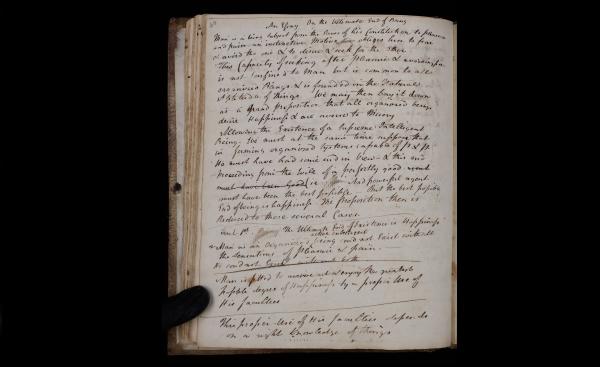 An Essay On the Ultimate End of Being
Man is a being subject from the Laws of his Constitution to pleasure
and pain an instinctive Motive obliges him to fear
& avoid the one & to desire & seek for the other
This Capacity of seeking after Pleasure & avoiding pain
is not confined to Man but is common to all
organised Beings & is founded in the Natural
Aptitude of things. We may then lay it down
as a grand proposition that all organised beings
desire Happiness & are averse to Misery
Allowing the Existence of a Supreme Intelligent
Being We must at the same time suppose that
in forming organised Systems capable of P & P.
He must have had some end in View & this end
proceeding from the Will of a perfectly good
must have been Good And powerful agent
must have been the best possible But the best possible
End of being is happiness The proposition then is
Reduced to these several Cases
The Ultimate End of Existence is Happiness
Man as an organised being could not Exist without
the sensations of pleasure & pain
He could not without both
Man is fitted to receive the greatest
possible degree of Happiness by a proper Use of
His faculties
This proper Use of His faculties depends
on a right Knowledge of things